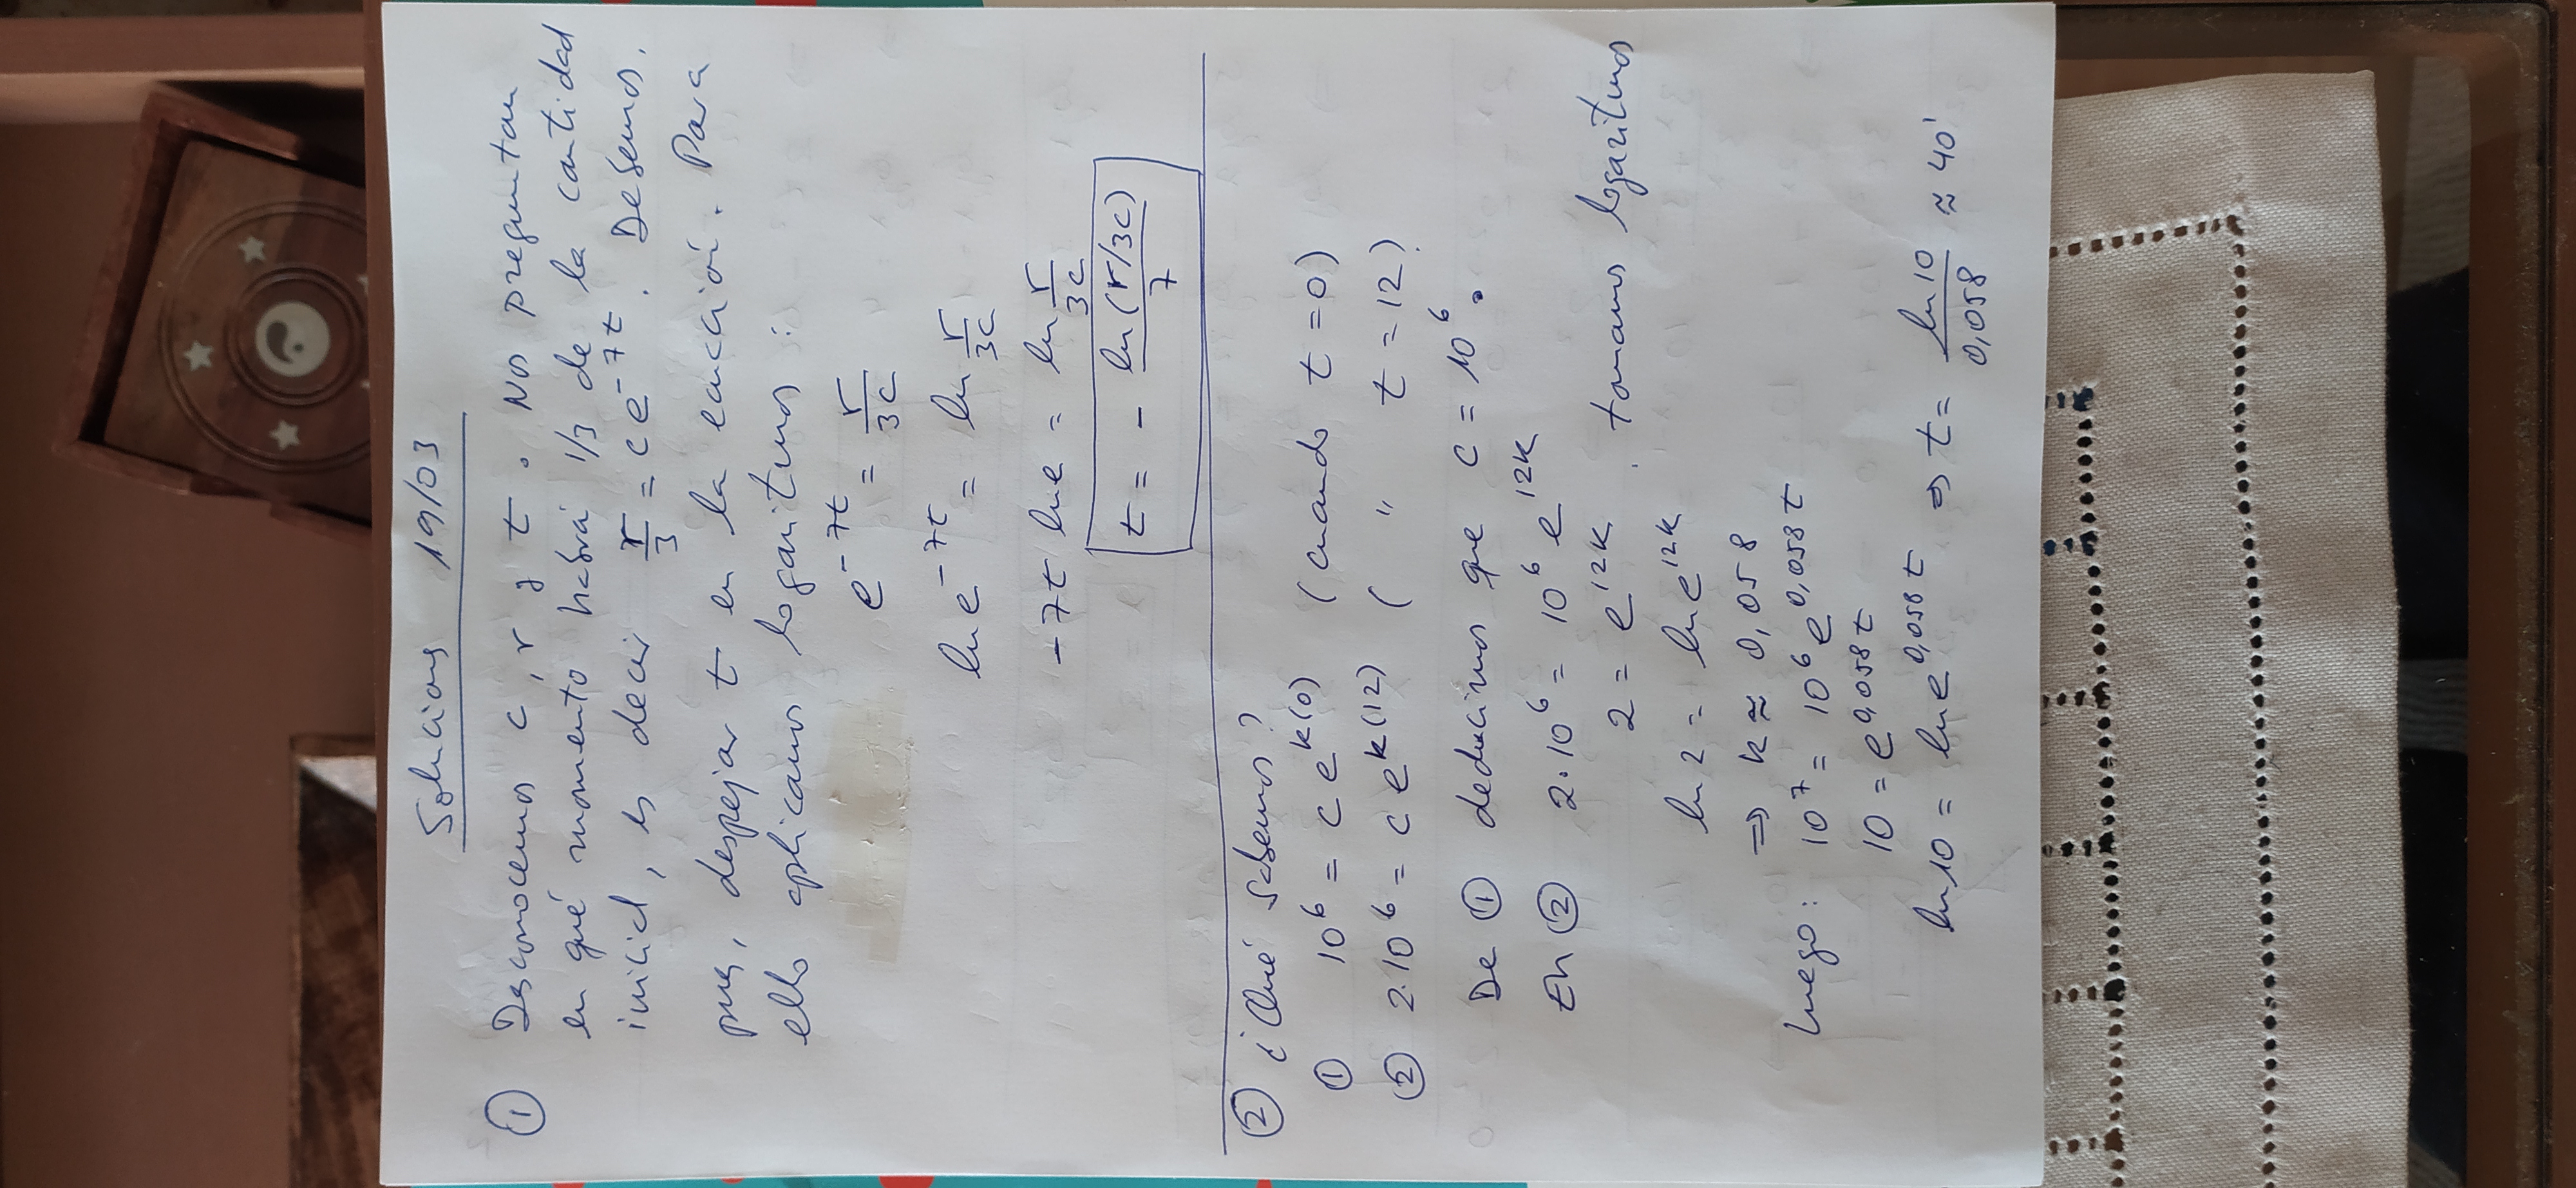 Soluciones 19/03
① Desconocemos c, r y t. Nos preguntan
en qué momento habrá 1/3 de la cantidad
inicial, es decir r/3 = ce^{-7t}. Debemos,
pues, despejar t en la ecuación. Para
ello aplicamos logaritmos:
e^{-7t} = r/3c
ln e^{-7t} = ln r/3c
-7t ln e = ln r/3c
t = - ln(r/3c)/7
② ¿Qué sabemos?
① 10^6 = c e^{k(0)} (cuando t = 0)
② 2·10^6 = c e^{k(12)} ( " t = 12)
De ① deducimos que c = 10^6.
En ② 2·10^6 = 10^6 e^{12k}
2 = e^{12k}. tomamos logaritmos
ln 2 = ln e^{12k}
⇒ k ≈ 0,058
Luego: 10^7 = 10^6 e^{0,058 t}
10 = e^{0,058 t}
ln 10 = ln e^{0,058 t} ⇒ t = ln 10/0,058 ≈ 40'